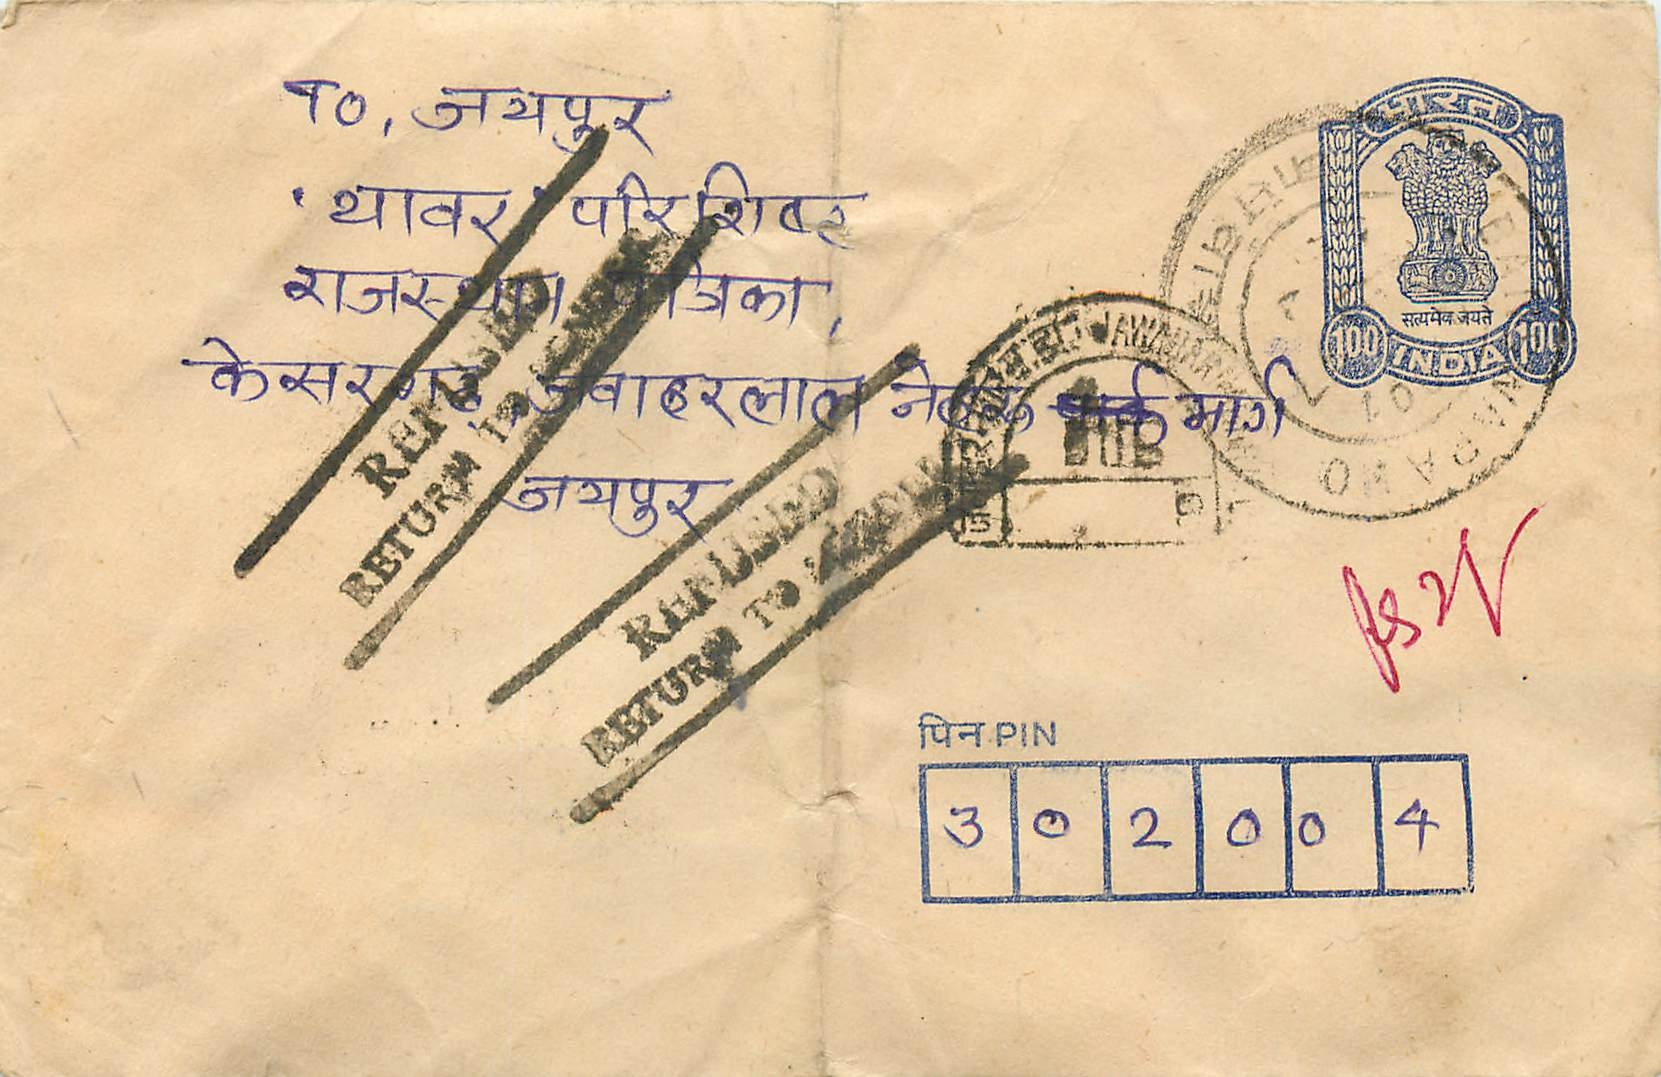 To, जयपुर
'थावर' परिशिष्ट
राजस्थान पत्रिका,
केसरगढ़ जवाहरलाल नेहरू मार्ग
जयपुर
REFUSED
RETURN TO SENDER
REFUSED
RETURN TO SENDER
भारत
सत्यमेव जयते
100 INDIA 100
JAWAHAR
पिन PIN
3 0 2 0 0 4